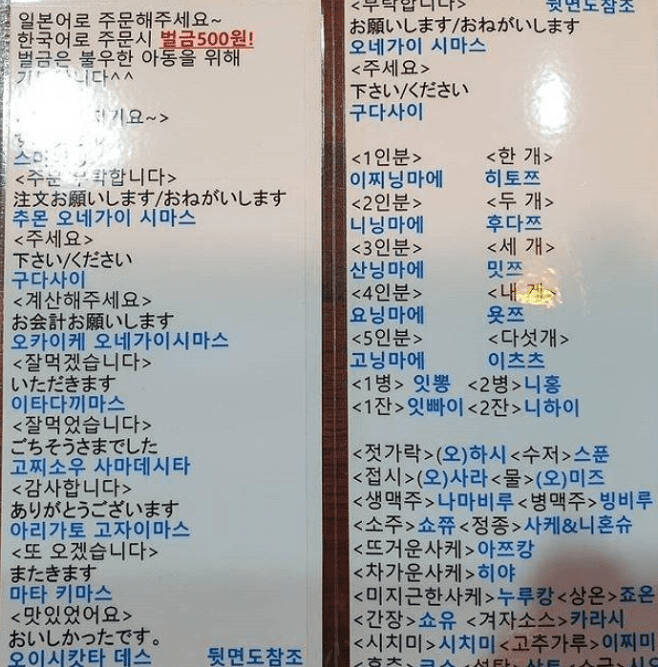 일본어로 주문해주세요~
한국어로 주문시 벌금500원!
벌금은 불우한 아동을 위해
니다^^
기요~>
<주문 부탁합니다>
注文お願いします/おねがいします
추몬 오네가이 시마스
<주세요>
下さい/ください
구다사이
<계산해주세요>
お会計お願いします
오카이케 오네가이시마스
<잘먹겠습니다>
いただきます
이타다끼마스
<잘먹었습니다>
ごちそうさまでした
고찌소우 사마데시타
<감사합니다>
ありがとうございます
아리가토 고자이마스
<또 오겠습니다>
またきます
마타 키마스
<맛있었어요>
おいしかったです。
오이시캇타 데스 뒷면도참조
<부탁합니다> 뒷면도참조
お願いします/おねがいします
오네가이 시마스
<주세요>
下さい/ください
구다사이
<1인분> <한 개>
이찌닝마에 히토쯔
<2인분> <두 개>
니닝마에 후다쯔
<3인분> <세 개>
산닝마에 밋쯔
<4인분> <내 게>
요닝마에 욧쯔
<5인분> <다섯개>
고닝마에 이츠츠
<1병> 잇뽕 <2병>니홍
<1잔>잇빠이<2잔>니하이
<젓가락>(오)하시 <수저>스푼
<접시>(오)사라 <물>(오)미즈
<생맥주>나마비루<병맥주>빙비루
<소주>쇼쮸<정종>사케&니혼슈
<뜨거운사케>아쯔캉
<차가운사케>히야
<미지근한사케>누루캉<상온>죠온
<간장>쇼유 <겨자소스>카라시
<시치미>시치미<고추가루>이찌미